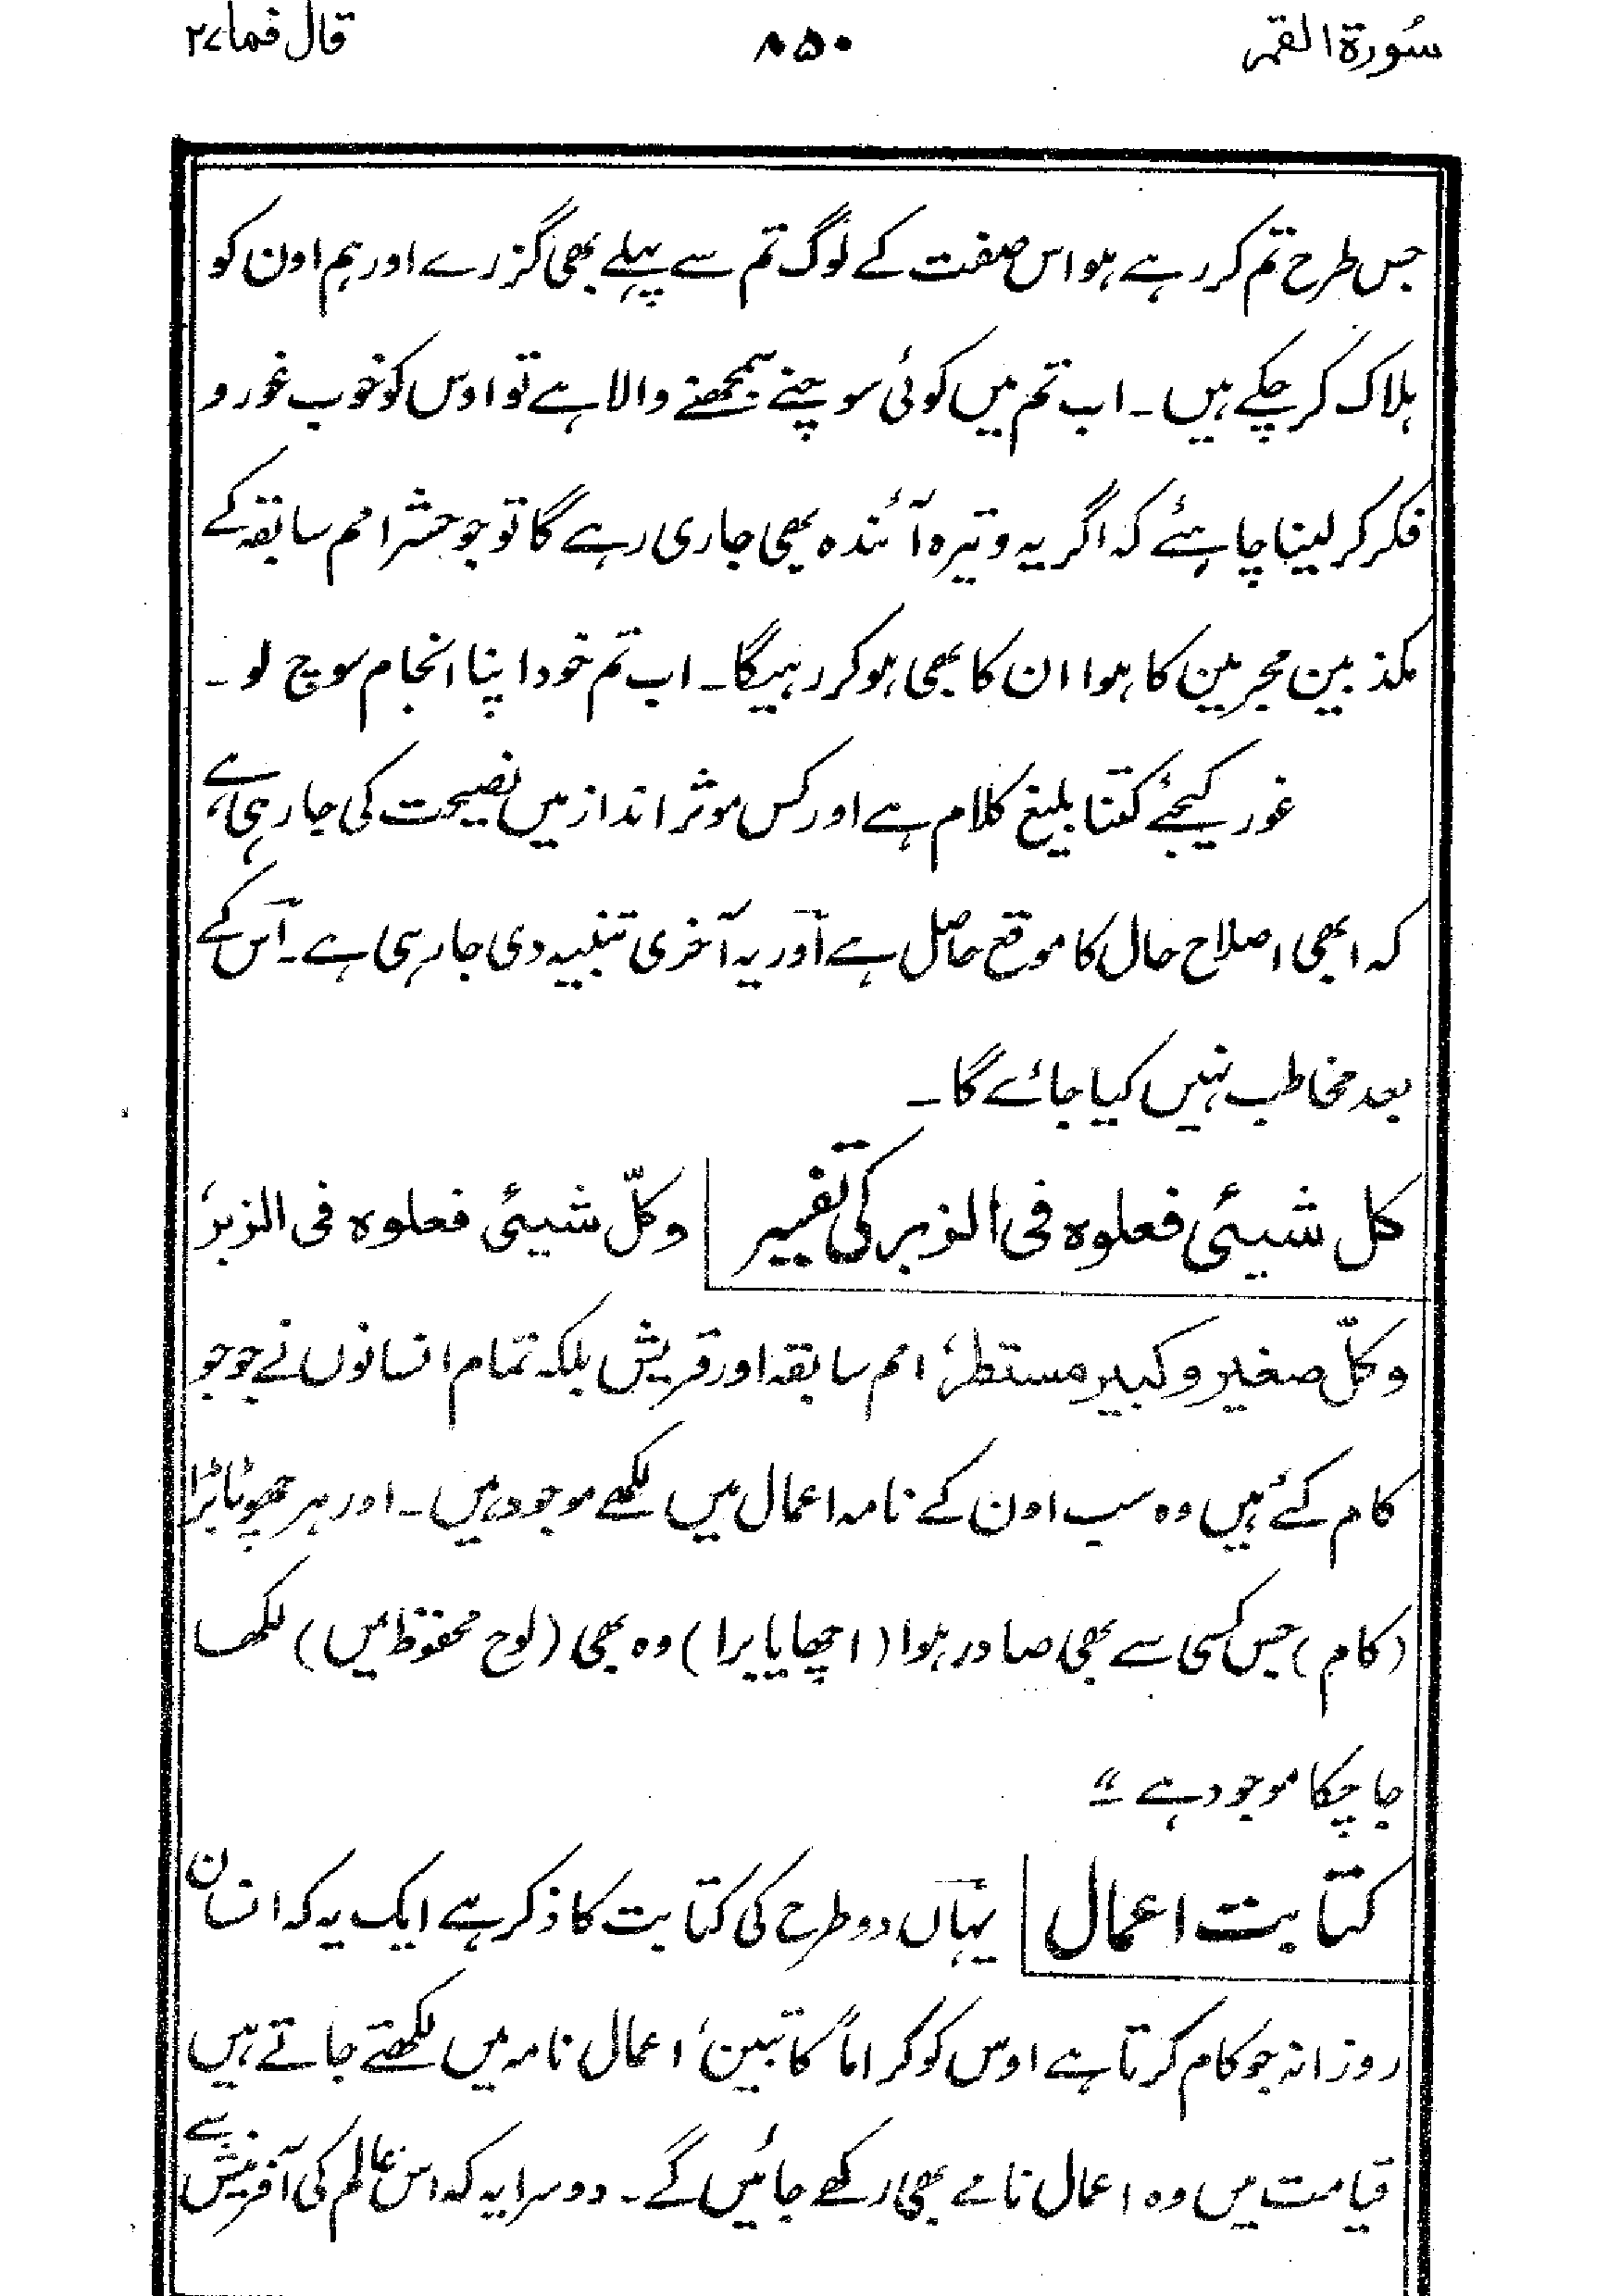 سُورة القمر ۸۵۰ قال فما ۲۷
جس طرح تم کر رہے ہو اس صفت کے لوگ تم سے پہلے بھی گزرے اور ہم اون کو
ہلاک کر چکے ہیں ۔ اب تم میں کوئی سوچنے سمجھنے والا ہے تو اوس کو خوب غور و
فکر کر لینا چاہئے کہ اگر یہ وتیرہ آئندہ بھی جاری رہے گا تو جو حشر امم سابقہ کے
مکذبین مجرمین کا ہوا ان کا بھی ہو کر رہیگا ۔ اب تم خود اپنا انجام سوچ لو ۔
غور کیجئے کتنا بلیغ کلام ہے اور کس موثر انداز میں نصیحت کی جا رہی ہے،
کہ ابھی اصلاح حال کا موقع حاصل ہے اور یہ آخری تنبیہ دی جا رہی ہے ۔ اس کے
بعد مخاطب نہیں کیا جائے گا ۔
کل شیئی فعلوہ فی الزبر کی تفسیر وکلّ شیئی فعلوہ فی الزبر٬
وکلّ صغیر و کبیر مستطر٬ امم سابقہ اور قریش بلکہ تمام انسانوں نے جو جو
کام کئے ہیں وہ سب اون کے نامہ اعمال میں لکھے موجود ہیں ۔ اور ہر چھوٹا بڑا
(کام) جس کسی سے بھی صادر ہوا (اچھا یا برا) وہ بھی (لوح محفوظ میں) لکھا
جا چکا موجود ہے ۔"
کتابت اعمال یہاں دو طرح کی کتابت کا ذکر ہے ایک یہ کہ انسان
روزانہ جو کام کرتا ہے اوس کو کراماً کاتبین٬ اعمال نامہ میں لکھتے جاتے ہیں
قیامت میں وہ اعمال نامے بھی رکھے جائیں گے ۔ دوسرا یہ کہ اس عالم کی آفرینش سے